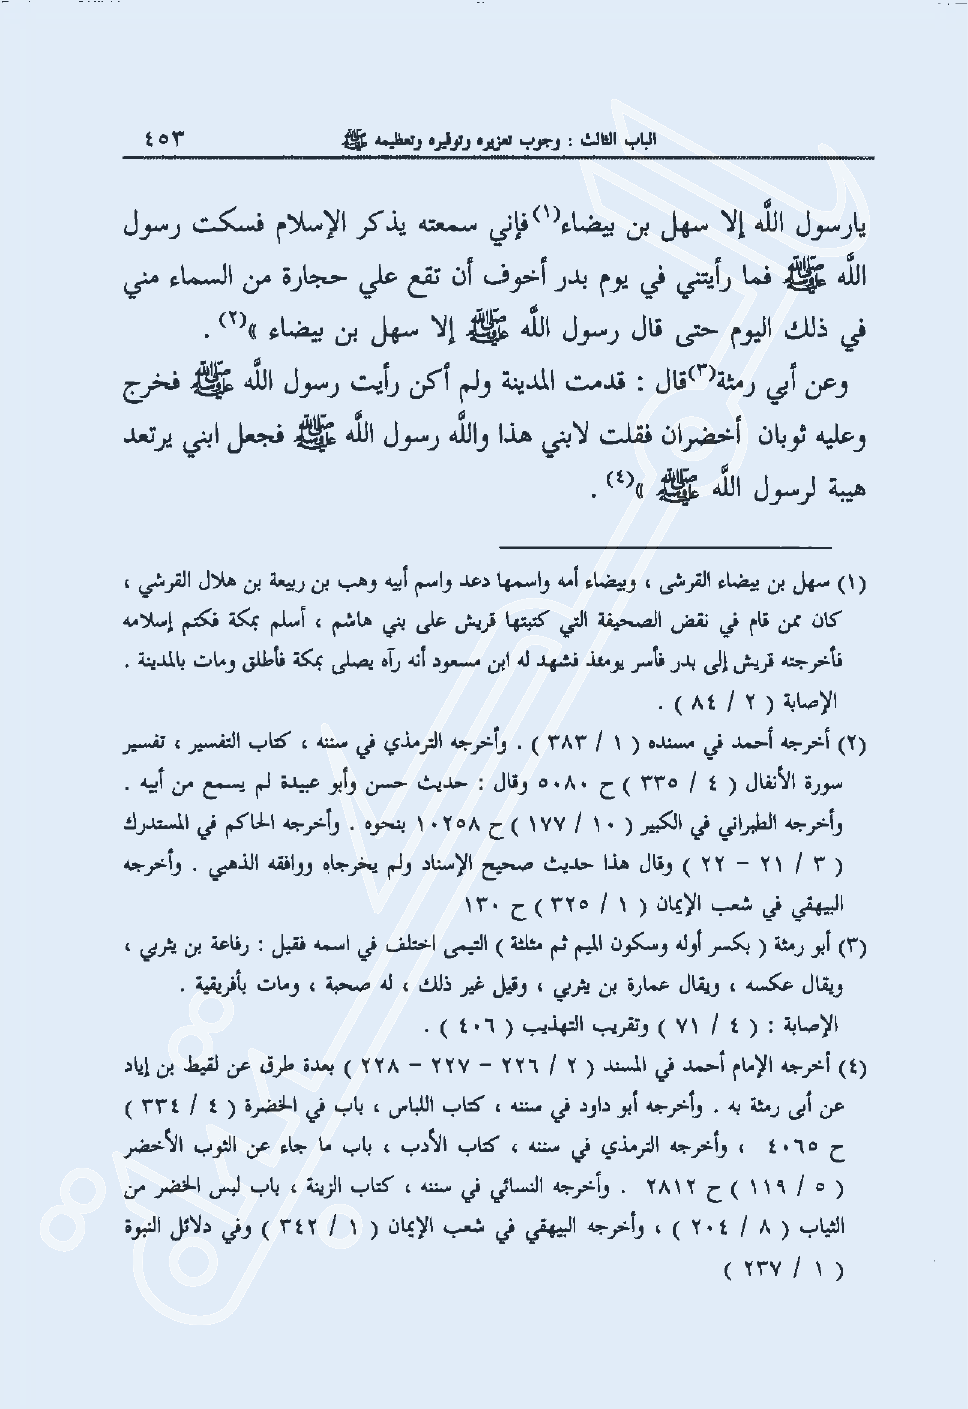 الباب الثالث : وجوب تعزيره وتوقيره وتعظيمه ﷺ ٤٥٣
يارسول اللَّه إلا سهل بن بيضاء(١)فإني سمعته يذكر الإسلام فسكت رسول
اللَّه ﷺ فما رأيتني في يوم بدر أخوف أن تقع علي حجارة من السماء مني
في ذلك اليوم حتى قال رسول اللَّه ﷺ إلا سهل بن بيضاء »(٢) .
وعن أبي رمثة(٣)قال : قدمت المدينة ولم أكن رأيت رسول اللَّه ﷺ فخرج
وعليه ثوبان أخضران فقلت لابني هذا واللَّه رسول اللَّه ﷺ فجعل ابني يرتعد
هيبة لرسول اللَّه ﷺ »(٤) .
(١) سهل بن بيضاء القرشى ، وبيضاء أمه واسمها دعد واسم أبيه وهب بن ربيعة بن هلال القرشي ،
كان ممن قام في نقض الصحيفة التي كتبتها قريش على بني هاشم ، أسلم بمكة فكتم إسلامه
فأخرجته قريش إلى بدر فأسر يومئذ فشهد له ابن مسعود أنه رآه يصلى بمكة فأطلق ومات بالمدينة .
الإصابة ( ٢ / ٨٤ ) .
(٢) أخرجه أحمد في مسنده ( ١ / ٣٨٣ ) . وأخرجه الترمذي في سننه ، كتاب التفسير ، تفسير
سورة الأنفال ( ٤ / ٣٣٥ ) ح ٥٠٨٠ وقال : حديث حسن وأبو عبيدة لم يسمع من أبيه .
وأخرجه الطبراني في الكبير ( ١٠ / ١٧٧ ) ح ١٠٢٥٨ بنحوه . وأخرجه الحاكم في المستدرك
( ٣ / ٢١ – ٢٢ ) وقال هذا حديث صحيح الإسناد ولم يخرجاه ووافقه الذهبي . وأخرجه
البيهقي في شعب الإيمان ( ١ / ٣٢٥ ) ح ١٣٠
(٣) أبو رمثة ( بكسر أوله وسكون الميم ثم مثلثة ) التيمى اختلف في اسمه فقيل : رفاعة بن يثربي ،
ويقال عكسه ، ويقال عمارة بن يثربي ، وقيل غير ذلك ، له صحبة ، ومات بأفريقية .
الإصابة : ( ٤ / ٧١ ) وتقريب التهذيب ( ٤٠٦ ) .
(٤) أخرجه الإمام أحمد في المسند ( ٢ / ٢٢٦ – ٢٢٧ – ٢٢٨ ) بعدة طرق عن لقيط بن إياد
عن أبى رمثة به . وأخرجه أبو داود في سننه ، كتاب اللباس ، باب في الخضرة ( ٤ / ٣٣٤ )
ح ٤٠٦٥ ، وأخرجه الترمذي في سننه ، كتاب الأدب ، باب ما جاء عن الثوب الأخضر
( ٥ / ١١٩ ) ح ٢٨١٢ . وأخرجه النسائي في سننه ، كتاب الزينة ، باب لبس الخضر من
الثياب ( ٨ / ٢٠٤ ) ، وأخرجه البيهقي في شعب الإيمان ( ١ / ٣٤٢ ) وفي دلائل النبوة
( ١ / ٢٣٧ )